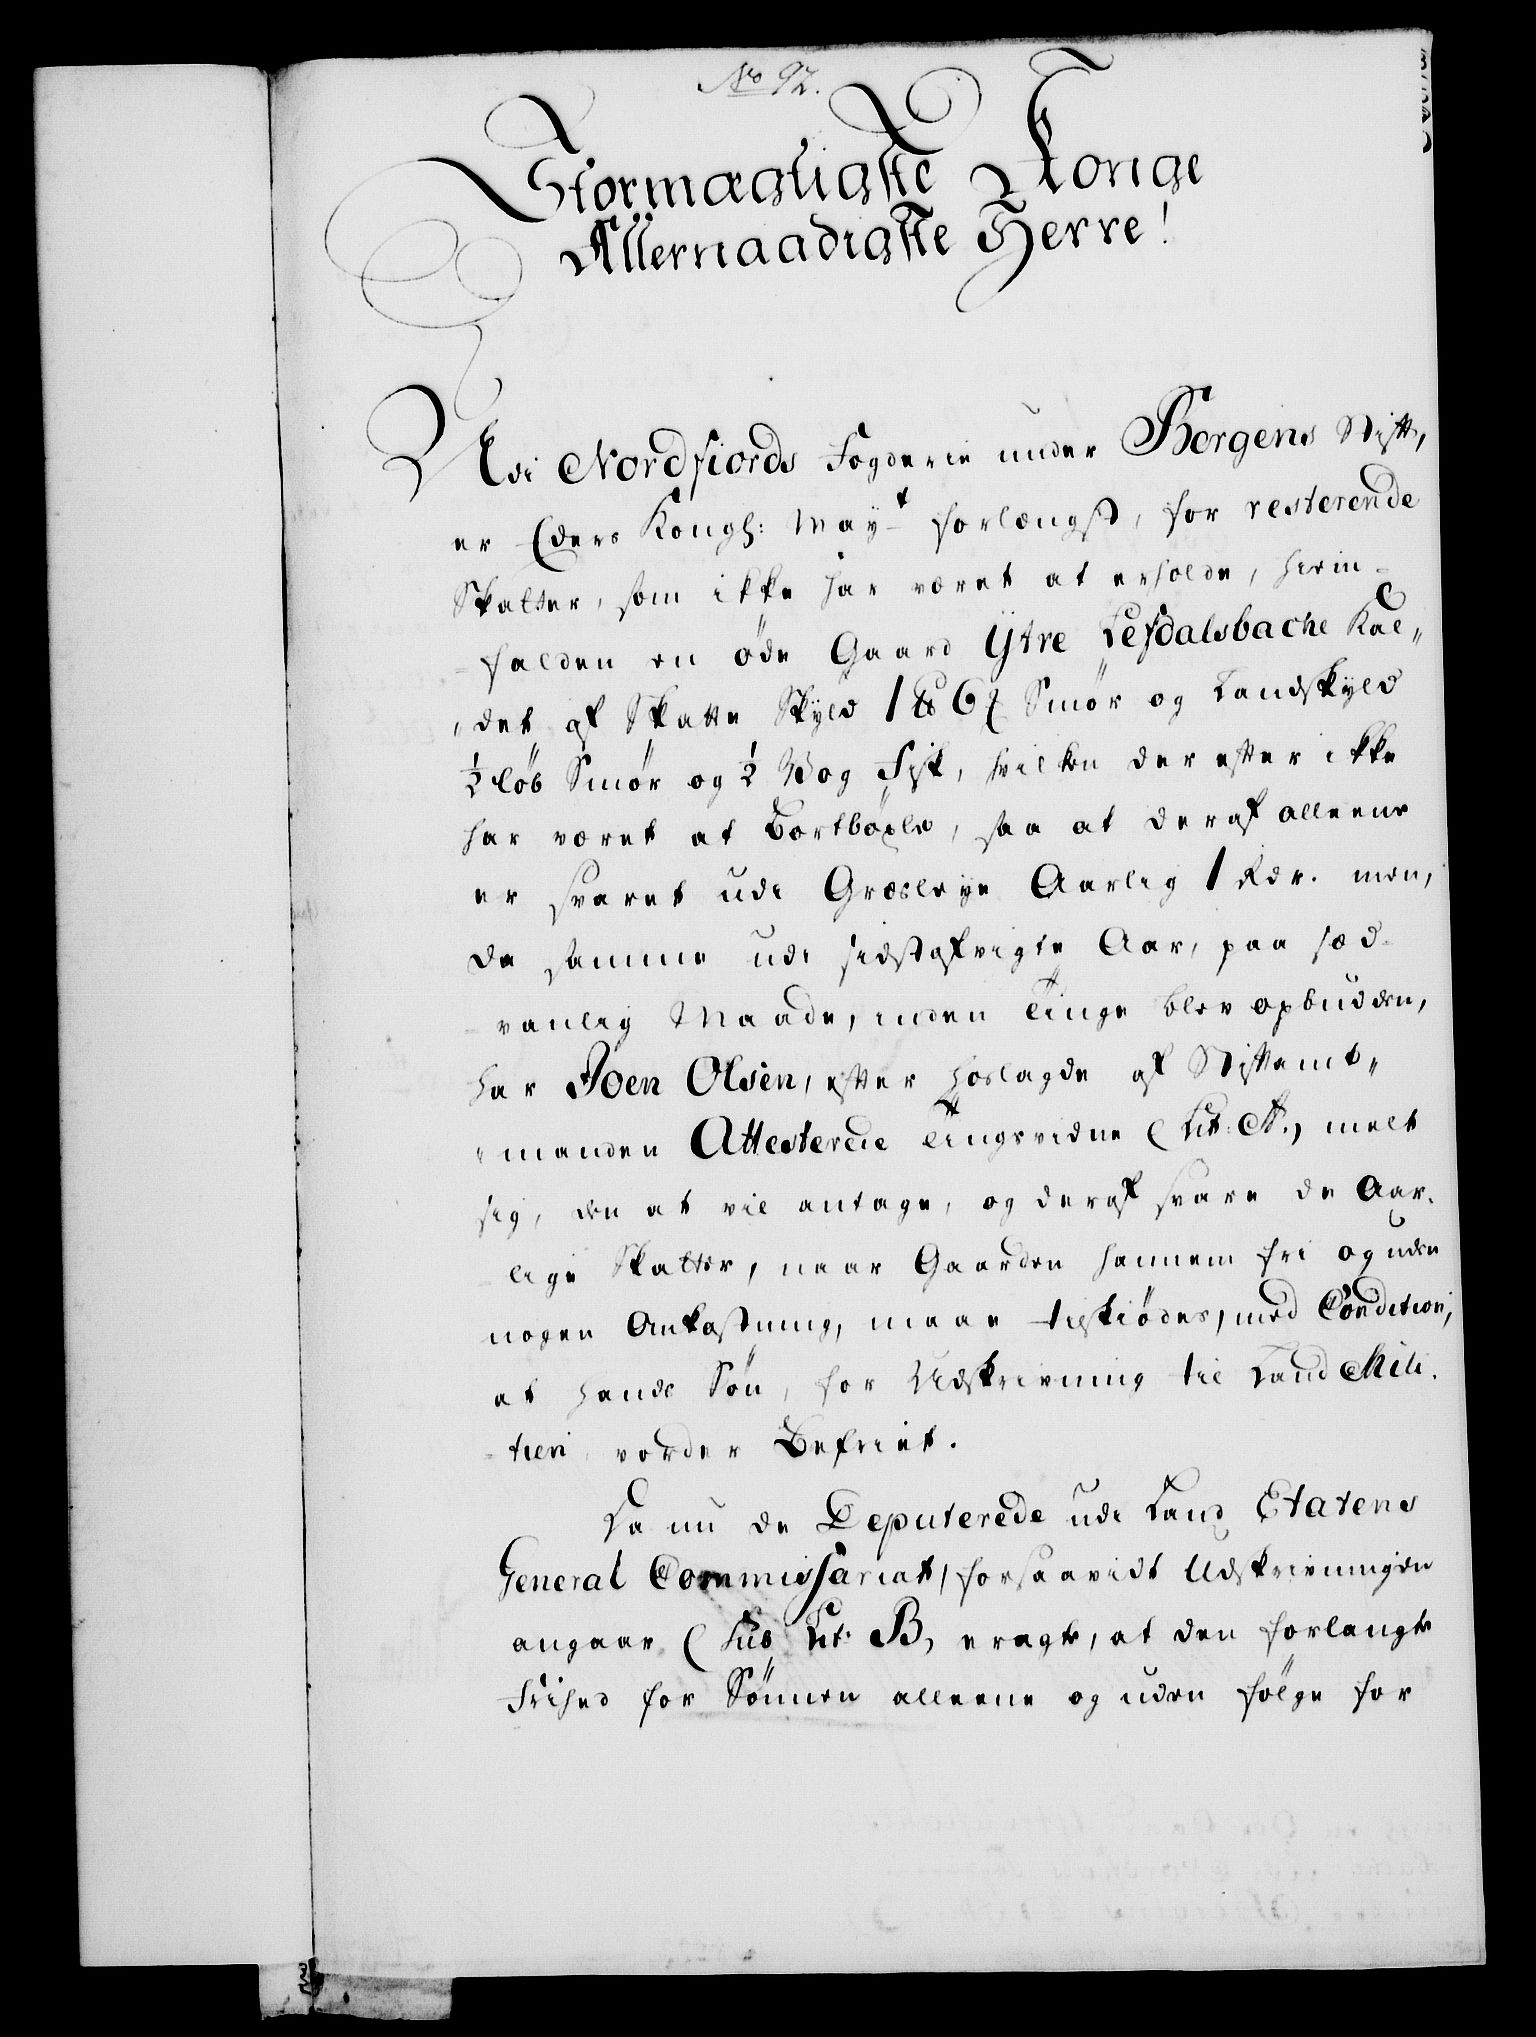 No 92.
Stormægtigste Konge
Allernaadigste Herre!
Udi Nordfiords Fogderie under Bergens Stift,
er Eders Kongl: Mayt forlængst, for resterende
Skatter, som ikke har været at erholde, hiem-
-falden en øde Gaard Ÿtre Lefdalsbache Kal„
„det af Skatte Skyld 1 ℔ 6 ℥ Smør og Landskyld
½ løb Smør og ½ Wog Fisk, hvilken der efter ikke
har været at Bortbøxle, saa at deraf alleene
er svaret udi Græsleye Aarlig 1 Rdr. men,
da samme udi sidstafvigte Aar, paa sæd-
-vanlig Maade, inden Tinge blev opbudden,
har Joen Olsen, efter hoslagde af Stiftamt„
„manden Attesterede Tingsvidne (Lit: A.) meldt
sig, den at vil antage, og deraf svare de Aar-
-lige Skatter, naar Gaarden hannem fri og uden
nogen Bekostning, maae tilskiødes, med Condition,
at hands Søn, for Udskrivning til Land Mili-
-tien vorder Befriet.
Da nu de Deputerede udi Land Etatens
General Commissariat, forsaavidt Udskrivningen
angaar (sub Lit: B, eragte, at den forlangte
Frihed for Sønnen alleene og uden følge for